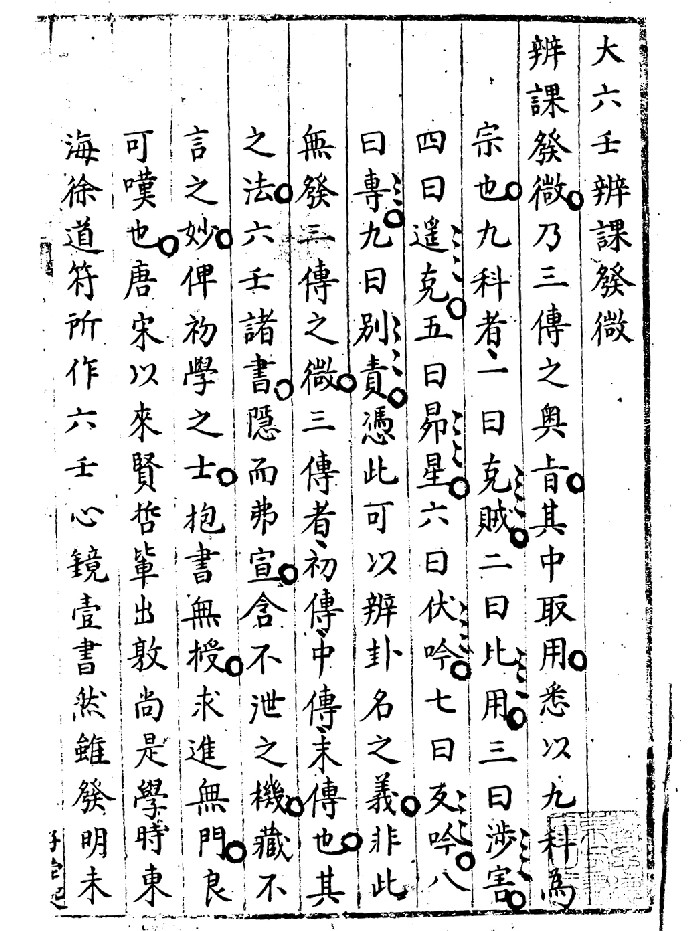 大六壬辨課發微
辨課發微乃三傳之奥旨其中取用悉以九科為
宗也九科者一曰克賊二曰比用三曰涉害
四曰遥克五曰昴星六曰伏吟七曰反吟八
曰專九曰别責憑此可以辨卦名之義非此
無發三傳之微三傳者初傳中傳末傳也其
之法六壬諸書隱而弗宣含不泄之機藏不
言之妙俾初學之士抱書無授求進無門良
可嘆也唐宋以來賢哲輩出敦尚是學時東
海徐道符所作六壬心鏡壹書然雖發明未